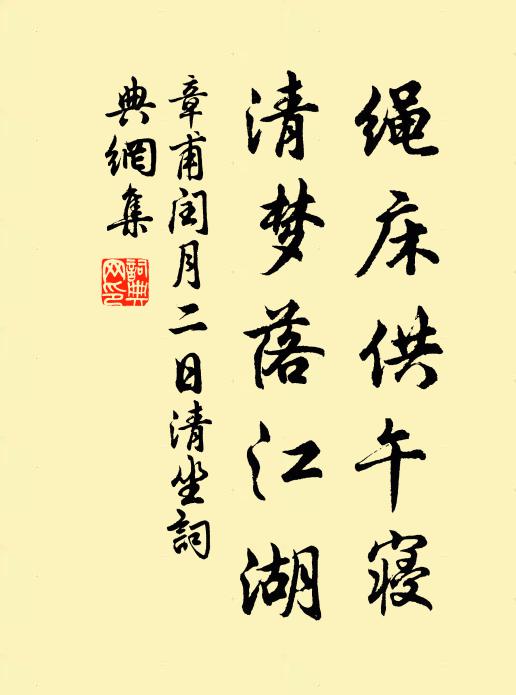 绳床供午寝
清梦落江湖
章甫闰月二日清坐詞
典網集
詞典網印